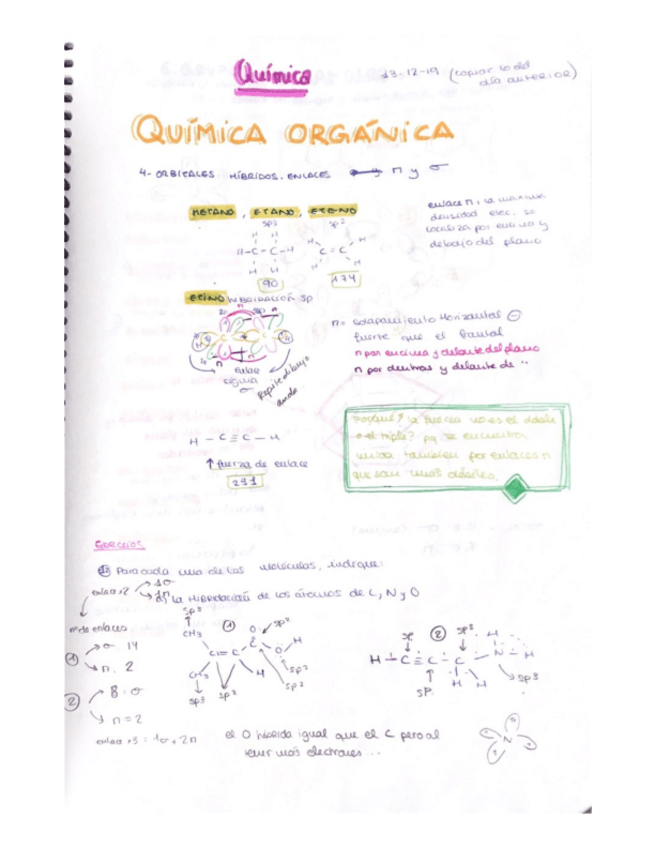 Química
13-12-19 (copiar lo del
día anterior)
QUÍMICA ORGÁNICA
4- ORBITALES HÍBRIDOS. ENLACES π y σ
METANO, ETANO, ETENO
sp3 sp2
H H
H-C-C-H C=C
H H
90 174
enlace π, la máxima
densidad elec. se
localiza por encima y
debajo del plano
ETINO HIBRIDACIÓN sp
enlace
sigma
σ
Repite dibujo
π= solapamiento Horizontal ⊖
fuerte que el frontal
π por encima y delante del plano
π por detras y delante de "
H - C ≡ C - H
↑ fuerza de enlace
291
¿Porqué? la fuerza no es el doble
o el triple? pq se encuentra
unida también por enlaces π
que son más débiles.
Para cada una de las moléculas, indique:
enlace 2 → 1σ
→ 1π
a) La Hibridación de los átomos de C, N y O
nº de enlaces
① → σ 14
→ π. 2
② → 8 σ
→ π = 2
enlace 3 = 1σ + 2π
sp3
CH3
① O sp2
C = C C O H
CH3 H sp3
sp3 sp2 sp2
sp ② sp3 H
H - C ≡ C - C - N - H
sp H H sp3
el O hibrida igual que el C pero al
tener más electrones...
N